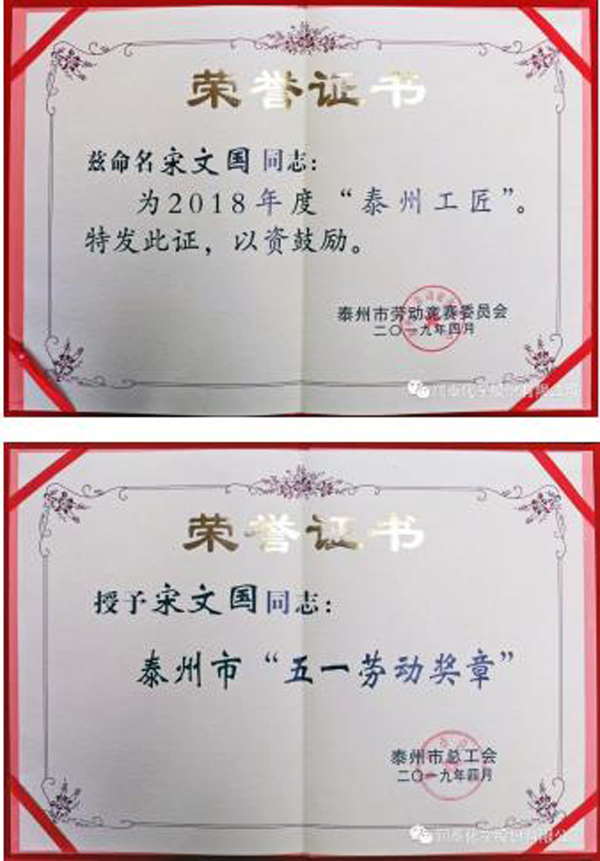 荣誉证书
兹命名宋文国同志：
为2018年度“泰州工匠”。
特发此证，以资鼓励。
泰州市劳动竞赛委员会
二〇一九年四月
荣誉证书
授予宋文国同志：
泰州市“五一劳动奖章”
泰州市总工会
二〇一九年四月